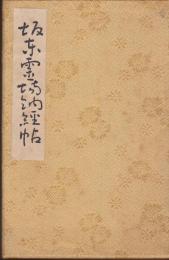 坂東霊場納経帖